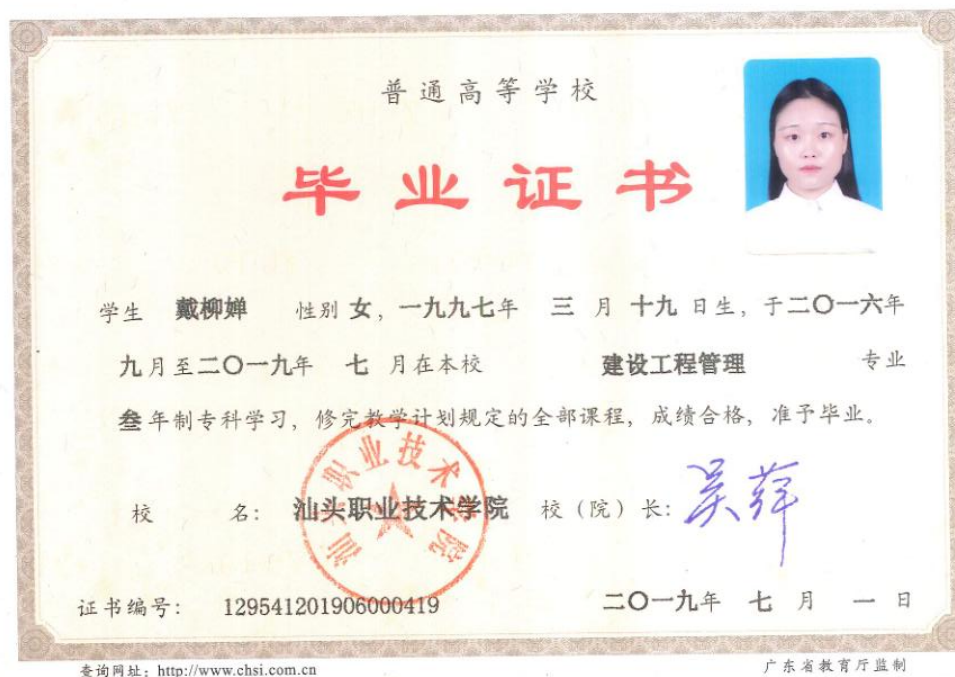 普通高等学校
毕业证书
学生 戴柳婵 性别 女，一九九七年 三 月 十九 日生，于二〇一六年
九月至二〇一九年 七 月在本校 建设工程管理 专业
叁年制专科学习，修完教学计划规定的全部课程，成绩合格，准予毕业。
校 名： 汕头职业技术学院 校（院）长：吴萍
汕头职业技术学院
证书编号： 129541201906000419 二〇一九年 七 月 一 日
查询网址：http://www.chsi.com.cn 广东省教育厅监制